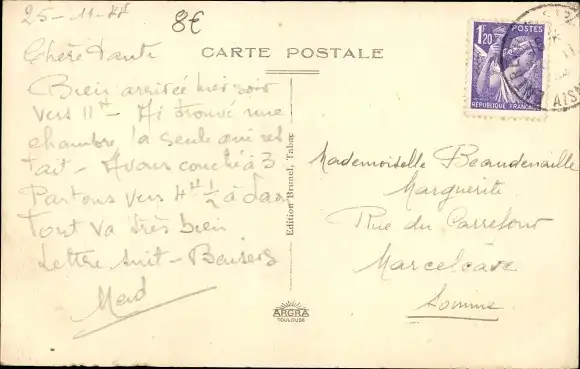 25-11-44
8€
CARTE POSTALE
1F20
POSTES
RÉPUBLIQUE FRANÇAISE
AISNE
Chère Tante
Bien arrivée hier soir
vers 11H - Ai trouvé une
chambre, la seule qui res
tait - Avons couché à 3
Partons vers 4H 1/2 à
Tout va très bien
Lettre suit - Baisers
Edition Brunel, Tabac
ARGRA
TOULOUSE
Mademoiselle Beaudenaille
Marguerite
Rue du Carrefour
Marcelcave
Somme